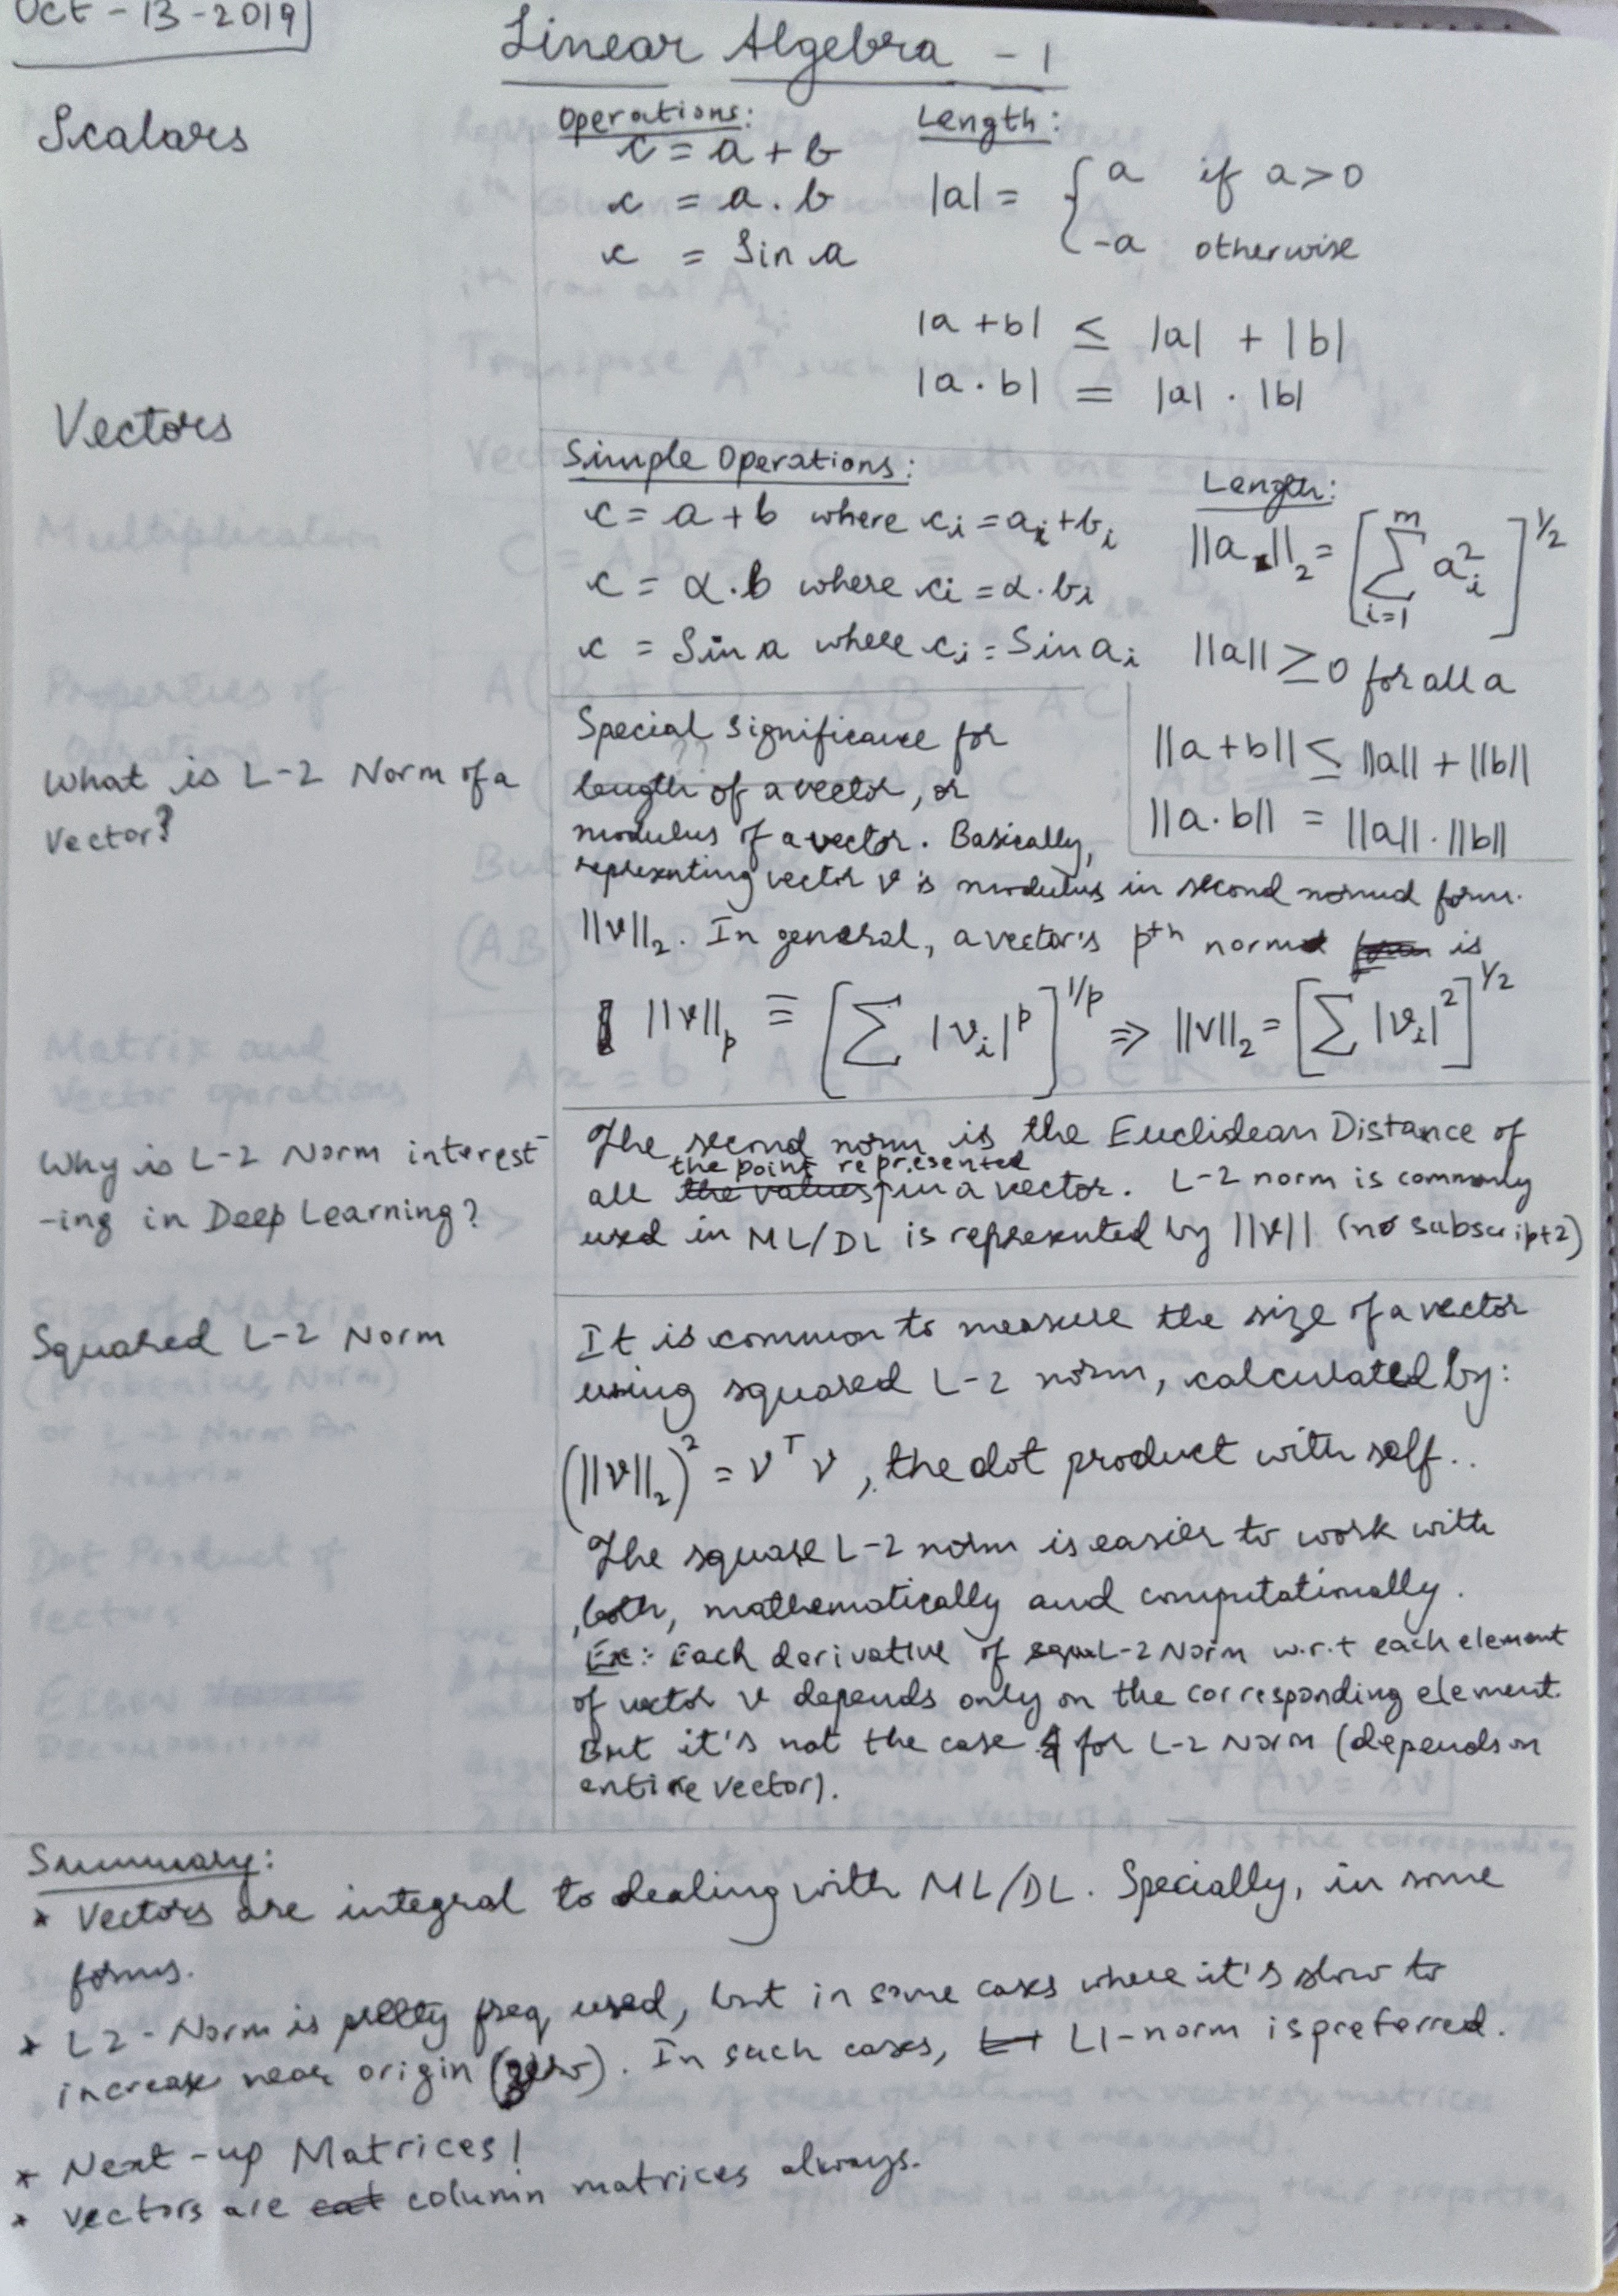 Oct-13-2019
Linear Algebra - 1
Scalars
Operations:
c = a + b
c = a . b
c = Sin a
Length:
|a| = { a if a > 0
-a otherwise
|a + b| ≤ |a| + |b|
|a . b| = |a| . |b|
Vectors
Simple Operations:
c = a + b where ci = ai + bi
c = α . b where ci = α . bi
c = Sin a where ci = Sin ai
Length:
||a||₂ = [ Σ_{i=1}^{m} a_i² ]^1/2
||a|| ≥ 0 for all a
||a + b|| ≤ ||a|| + ||b||
||a . b|| = ||a|| . ||b||
What is L-2 Norm of a
Vector?
Special Significance for
length of a vector, or
modulus of a vector. Basically,
representing vector v is modulus in second normed form.
||v||₂. In general, a vector's pth norm is
||v||_p ≡ [ Σ |v_i|^p ]^1/p ⇒ ||v||₂ = [ Σ |v_i|² ]^1/2
Why is L-2 Norm interest
-ing in Deep Learning?
The second norm is the Euclidean Distance of
the point represented
all the values in a vector. L-2 norm is commonly
used in ML/DL is represented by ||v|| (no subscript 2)
Squared L-2 Norm
It is common to measure the size of a vector
using squared L-2 norm, calculated by:
(||v||₂)² = vᵀ v, the dot product with self..
The square L-2 norm is easier to work with
both, mathematically and computationally.
Ex: Each derivative of squ L-2 Norm w.r.t each element
of vector v depends only on the corresponding element.
But it's not the case for L-2 Norm (depends on
entire vector).
Summary:
* Vectors are integral to dealing with ML/DL. Specially, in some
forms.
* L2-Norm is pretty freq used, but in some cases where it's slow to
increase near origin (zero). In such cases, L1-norm is preferred.
* Next-up Matrices!
* Vectors are cat column matrices always.